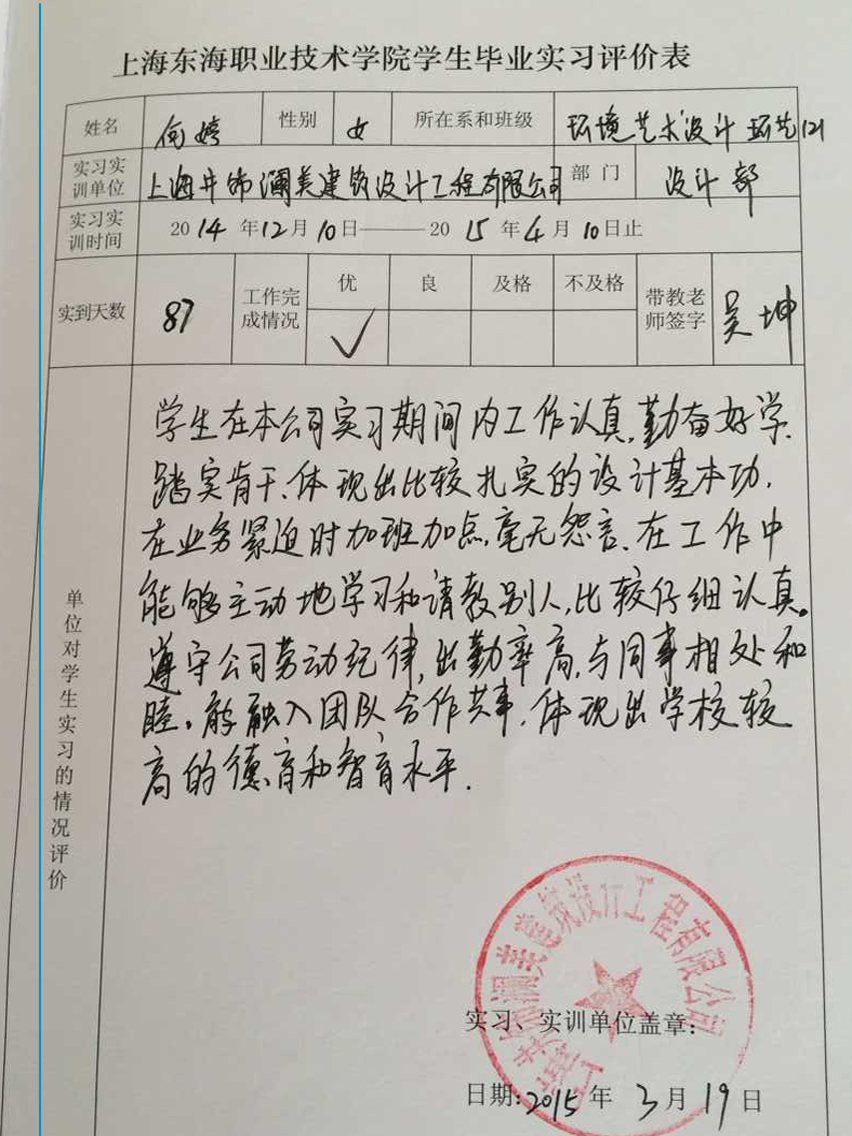 上海东海职业技术学院学生毕业实习评价表
姓名 向婷 性别 女 所在系和班级 环境艺术设计 环艺121
实习实训单位 上海井饰澜美建筑设计工程有限公司 部门 设计部
实习实训时间 2014年12月10日——2015年4月10日止
实到天数 87 工作完成情况 优 良 及格 不及格 带教老师签字 吴坤
✓
单位对学生实习的情况评价
学生在本公司实习期间内工作认真,勤奋好学、
踏实肯干、体现出比较扎实的设计基本功,
在业务紧迫时加班加点,毫无怨言、在工作中
能够主动地学习和请教别人,比较仔细认真。
遵守公司劳动纪律,出勤率高,与同事相处和
睦。能融入团队合作共事,体现出学校较
高的德育和智育水平.
澜美建筑设计工程有限公司
实习、实训单位盖章:
日期:2015年3月19日